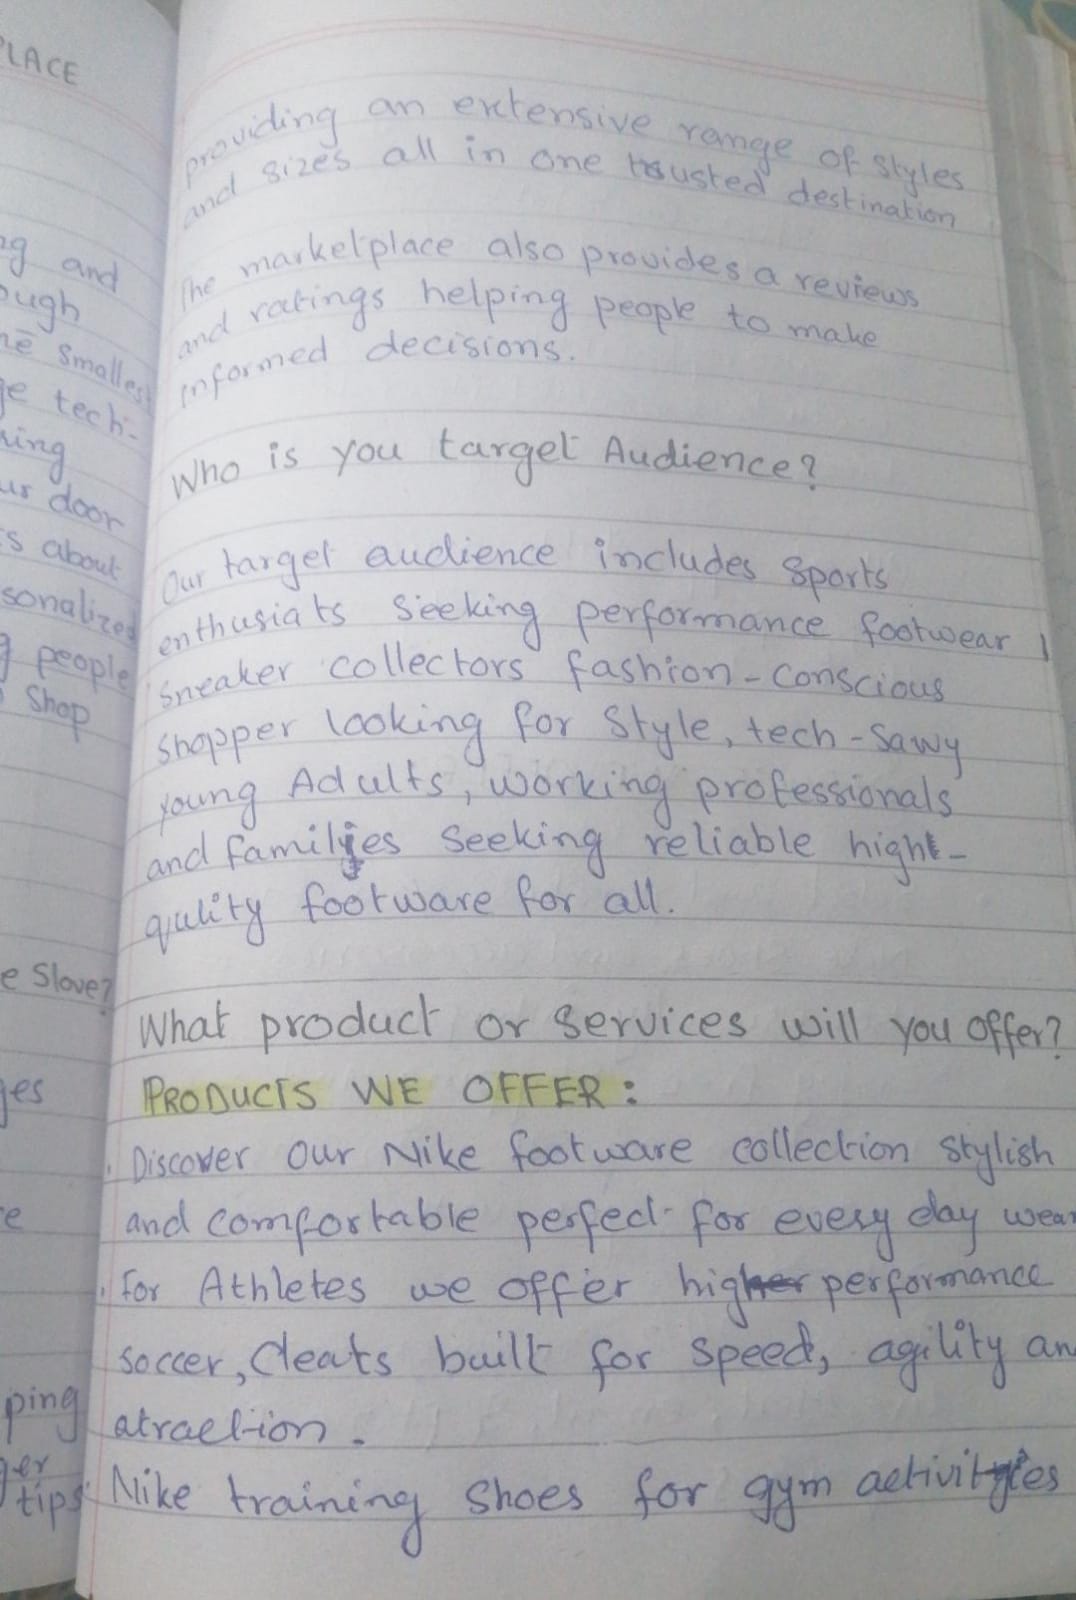 PLACE
and
ough
smallest
tech-
ring
door
about
sonalized
people
Shop
e Slove?
ges
ping
ger
tips
providing an extensive range of styles
and sizes all in one trusted destination
The marketplace also provides a reviews
and ratings helping people to make
informed decisions.
Who is you target Audience?
Our target audience includes Sports
enthusiats seeking performance footwear
sneaker collectors fashion-conscious
shopper looking for Style, tech-sawy
young Adults, working professionals
and families seeking reliable hight-
qulity footware for all.
What product or services will you offer?
PRODUCTS WE OFFER:
. Discover our Nike footware collection stylish
and comfortable perfect for every day wear
. for Athletes we offer high performance
soccer, Cleats built for speed, agility an
atraction.
. Nike training shoes for gym activities